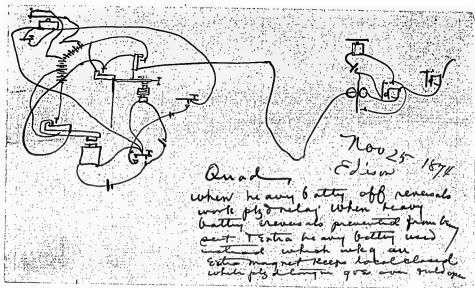 Nov 25 1874
Edison
Quad
when heavy batty off reversals
work plzd relay when heavy
battery reversals prevented from by
sent. Extra heavy battery used
instead which making an
Extra magnet keeps local closed
while plzd